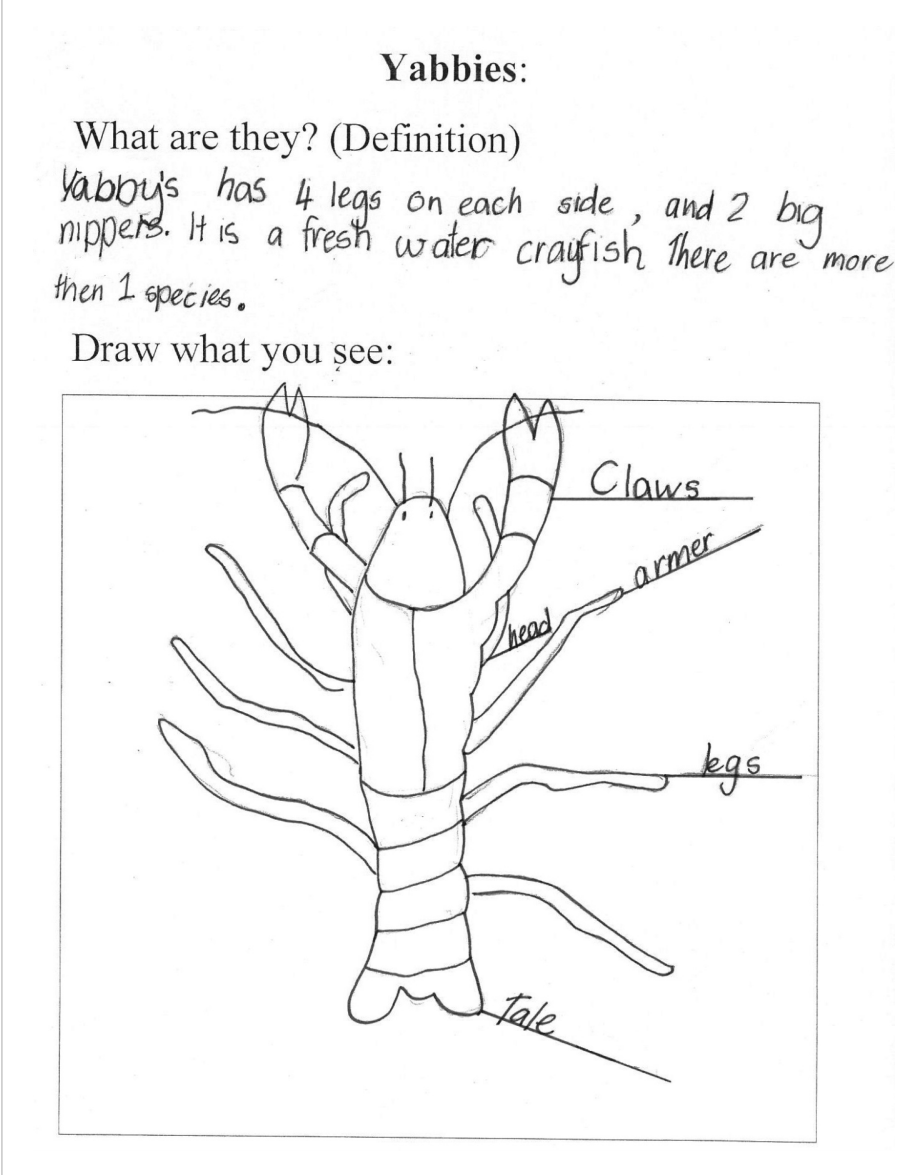 Yabbies:
What are they? (Definition)
Yabby's has 4 legs on each side, and 2 big
nippers. It is a fresh water crayfish There are more
then 1 species.
Draw what you see:
Claws
armer
head
legs
Tale